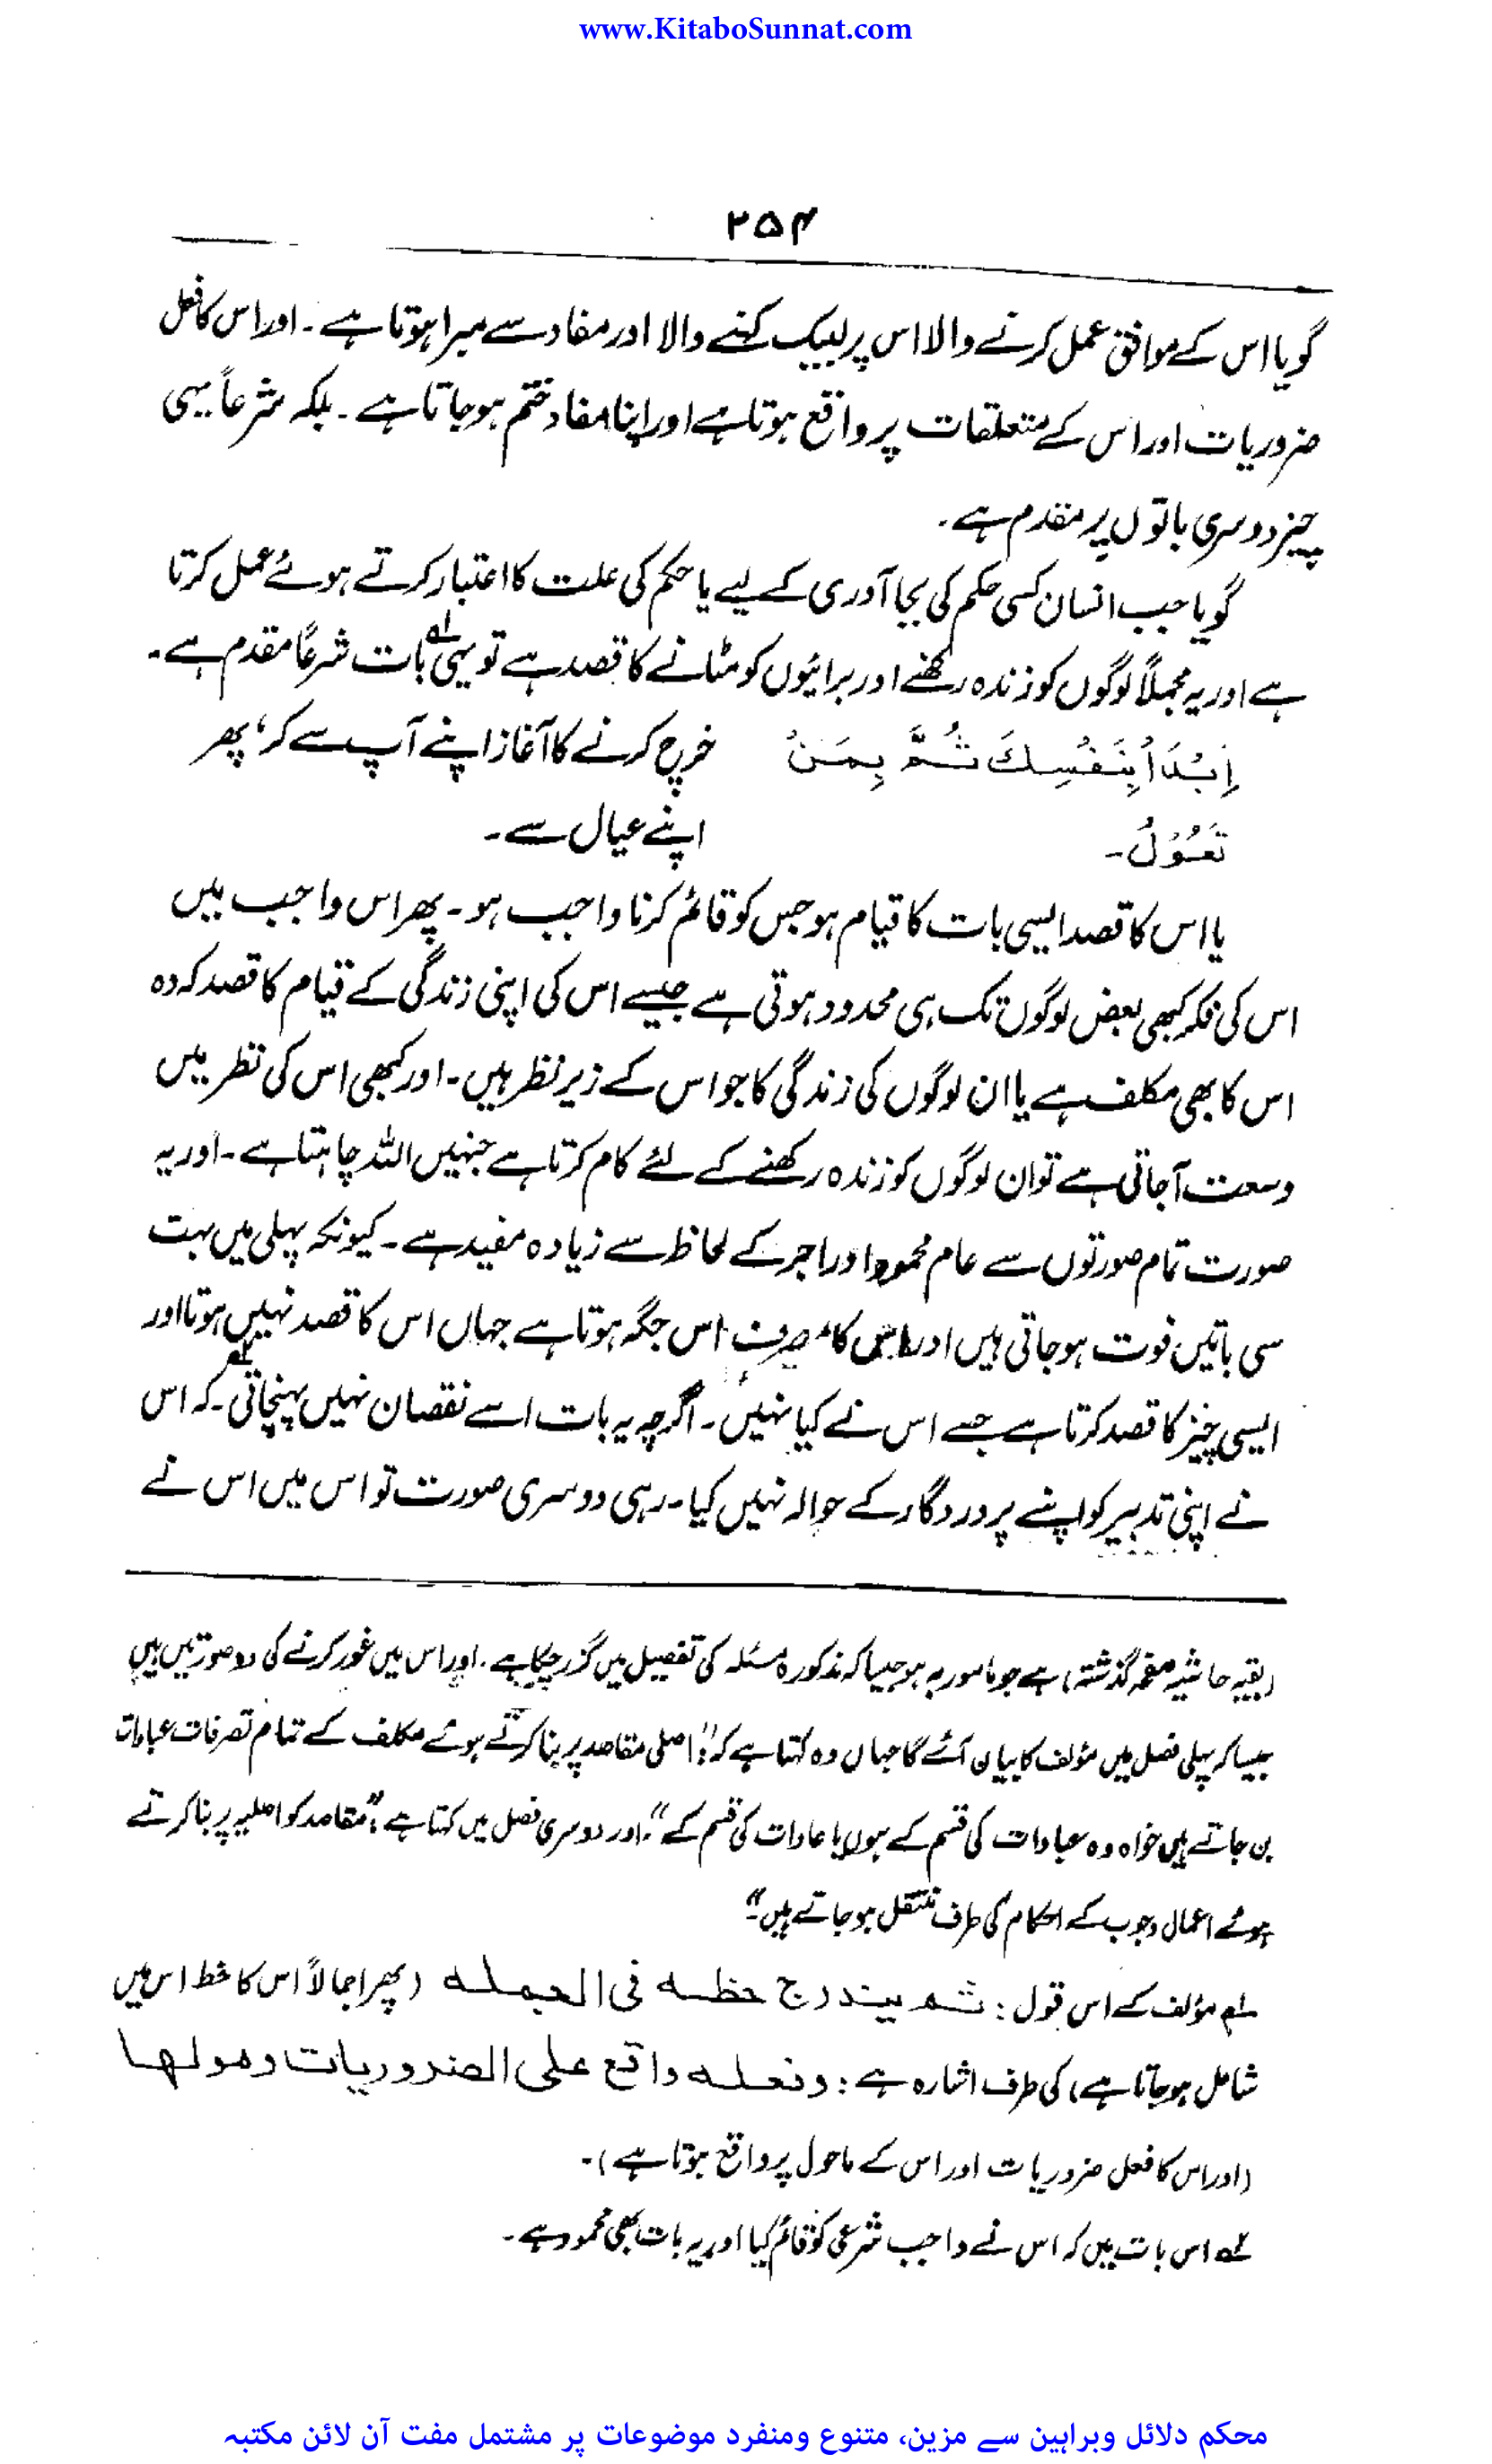 www.KitaboSunnat.com
۲۵۴
گویا اس کے موافق عمل کرنے والا اس پر لبیک کہنے والا اور مفاد سے مبرا ہوتا ہے۔ اور اس کا فعل
ضروریات اور اس کے متعلقات پر واقع ہوتا ہے اور اپنا مفاد ختم ہو جاتا ہے۔ بلکہ شرعاً یہی
چیز دوسری باتوں پر مقدم ہے۔
گویا جب انسان کسی حکم کی بجا آوری کے لیے یا حکم کی علت کا اعتبار کرتے ہوئے عمل کرتا
ہے اور یہ مجملاً لوگوں کو زندہ رکھنے اور برائیوں کو مٹانے کا قصد ہے تو یہی لہ بات شرعًا مقدم ہے۔
اِبْدَاْ بِنَفْسِكَ ثُمَّ بِمَنْ خرچ کرنے کا آغاز اپنے آپ سے کر، پھر
تَعُوْلُ۔ اپنے عیال سے۔
یا اس کا قصد ایسی بات کا قیام ہو جس کو قائم کرنا واجب ہو۔ پھر اس واجب میں
اس کی فکر کبھی بعض لوگوں تک ہی محدود ہوتی ہے جیسے اس کی اپنی زندگی کے قیام کا قصد کہ وہ
اس کا بھی مکلف ہے یا ان لوگوں کی زندگی کا جو اس کے زیر نظر ہیں۔ اور کبھی اس کی نظر میں
وسعت آجاتی ہے تو ان لوگوں کو زندہ رکھنے کے لئے کام کرتا ہے جنہیں اللہ چاہتا ہے۔ اور یہ
صورت تمام صورتوں سے عام محمود اور اجر کے لحاظ سے زیادہ مفید ہے۔ کیونکہ پہلی میں بہت
سی باتیں فوت ہو جاتی ہیں اور اس کا صرف اس جگہ ہوتا ہے جہاں اس کا قصد نہیں ہوتا اور
ایسی چیز کا قصد کرتا ہے جسے اس نے کیا نہیں۔ اگرچہ یہ بات اسے نقصان نہیں پہنچاتی۔ کہ اس
نے اپنی تدبیر کو اپنے پروردگار کے حوالہ نہیں کیا۔ رہی دوسری صورت تو اس میں اس نے
(بقیہ حاشیہ صفحہ گذشتہ) ہے جو مامور بہ ہو جیسا کہ مذکورہ مسئلہ کی تفصیل میں گزر چکا ہے۔ اور اس میں غور کرنے کی دو صورتیں ہیں
جیسا کہ پہلی فصل میں مؤلف کا بیان آئے گا جہاں وہ کہتا ہے کہ: "اصلی مقاصد پر بنا کرتے ہوئے مکلف کے تمام تصرفات عبادات
بن جاتے ہیں خواہ وہ عبادات کی قسم کے ہوں یا عادات کی قسم کے"، اور دوسری فصل میں کہتا ہے: "مقاصد کو اصلیہ پر بنا کرتے
ہوئے اعمال وجوب کے احکام کی طرف منتقل ہو جاتے ہیں۔"
لہ مؤلف کے اس قول: ثم یندرج حظہ فی الجملہ (پھر اجمالاً اس کا خط اس میں
شامل ہو جاتا ہے) کی طرف اشارہ ہے: وفعلہ واقع علی الضروریات وحولھا
(اور اس کا فعل ضروریات اور اس کے ماحول پر واقع ہوتا ہے)۔
لہ اس بات میں کہ اس نے واجب شرعی کو قائم کیا اور یہ بات بھی محمود ہے۔
محکم دلائل وبراہین سے مزین، متنوع ومنفرد موضوعات پر مشتمل مفت آن لائن مکتبہ